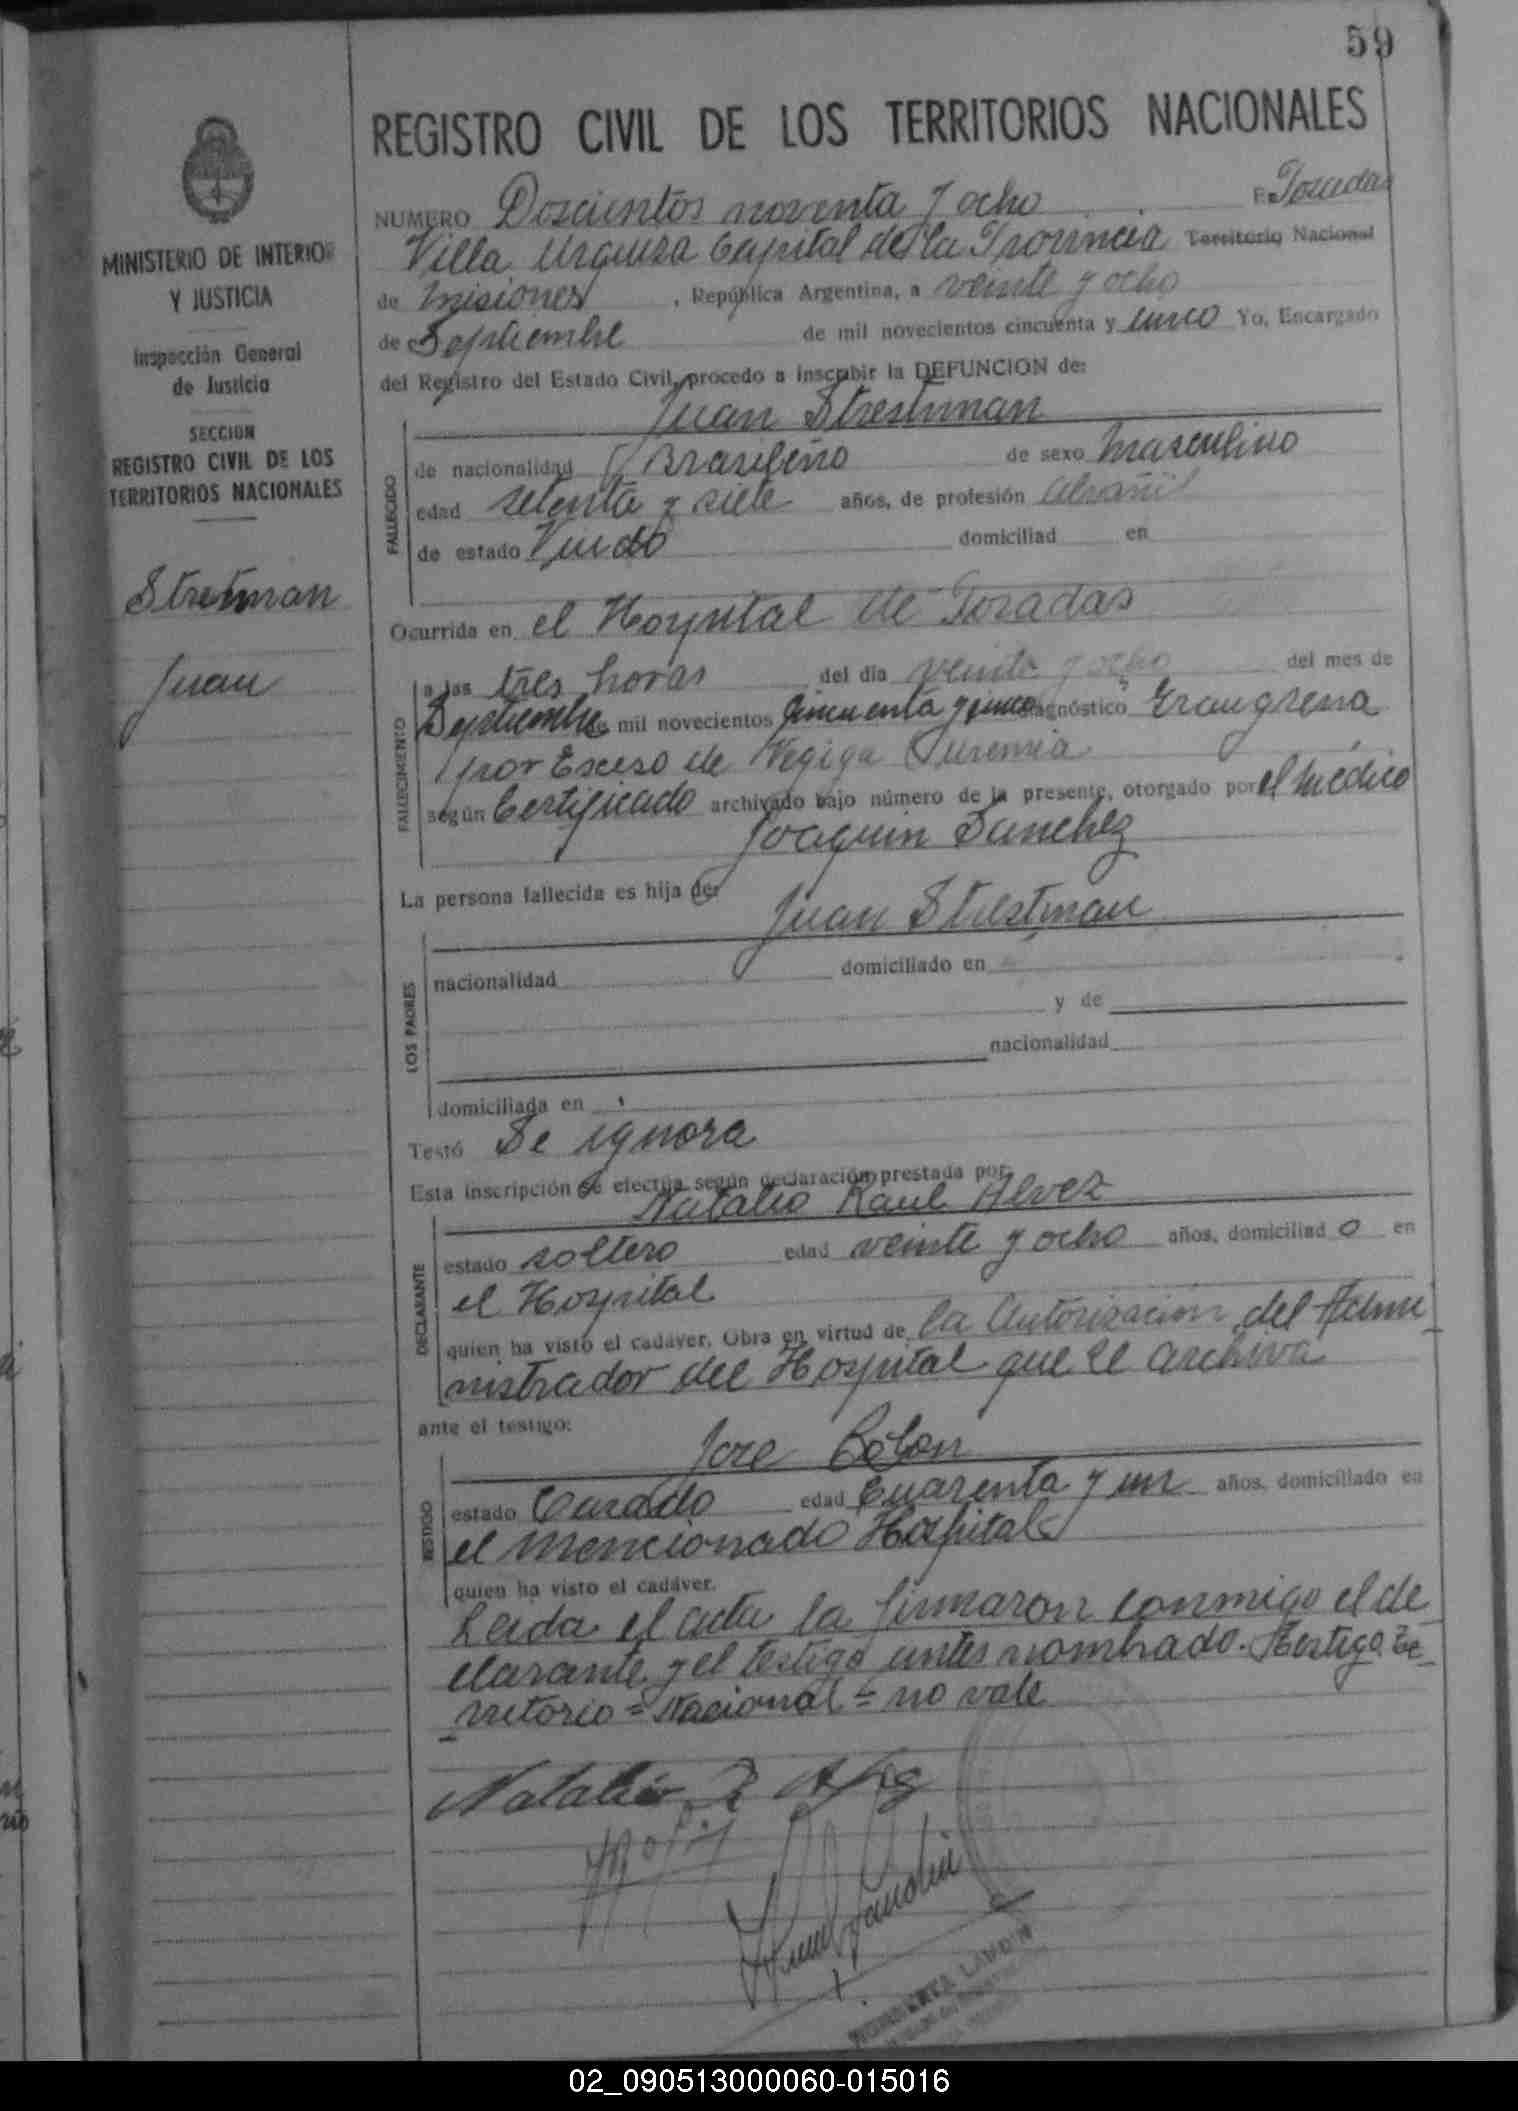 59
REGISTRO CIVIL DE LOS TERRITORIOS NACIONALES
MINISTERIO DE INTERIOR
Y JUSTICIA
Inspección General
de Justicia
SECCION
REGISTRO CIVIL DE LOS
TERRITORIOS NACIONALES
Stretman
Juan
NUMERO Doscientos noventa y ocho E. Posadas
Villa Urquiza Capital de la Provincia Territorio Nacional
de Misiones, República Argentina, a veinte y ocho
de Septiembre de mil novecientos cincuenta y cinco Yo, Encargado
del Registro del Estado Civil, procedo a inscribir la DEFUNCION de:
Juan Strestman
FALLECIDO
de nacionalidad Brasileño de sexo masculino
edad setenta y siete años, de profesión albañil
de estado Viudo domiciliad en
Ocurrida en el Hospital de Posadas
FALLECIMIENTO
a las tres horas del día veinte y ocho del mes de
Septiembre de mil novecientos cincuenta y cinco diagnóstico Grangrena
por Exceso de Vegiga Ouremia
según Certificado archivado bajo número de la presente, otorgado por el médico
Joaquin Sanchez
La persona fallecida es hija de:
Juan Strestman
LOS PADRES
nacionalidad domiciliado en
y de
nacionalidad
domiciliada en
Testó Se ignora
Esta inscripción se efectúa según declaración prestada por:
Natalio Raul Alvez
DECLARANTE
estado soltero edad veinte y ocho años, domiciliad o en
el Hospital
quien ha visto el cadáver. Obra en virtud de la Autorizacion del Admi
nistrador del Hospital que se archiva
ante el testigo:
Jose
TESTIGO
estado Casado edad Cuarenta y un años, domiciliado en
el mencionado Hospital
quien ha visto el cadáver.
Leida el acta la firmaron conmigo el de
clarante y el testigo antes nombrado. Testigo Te_
rritorio = Nacional = no vale
Natalio R
02_090513000060-015016